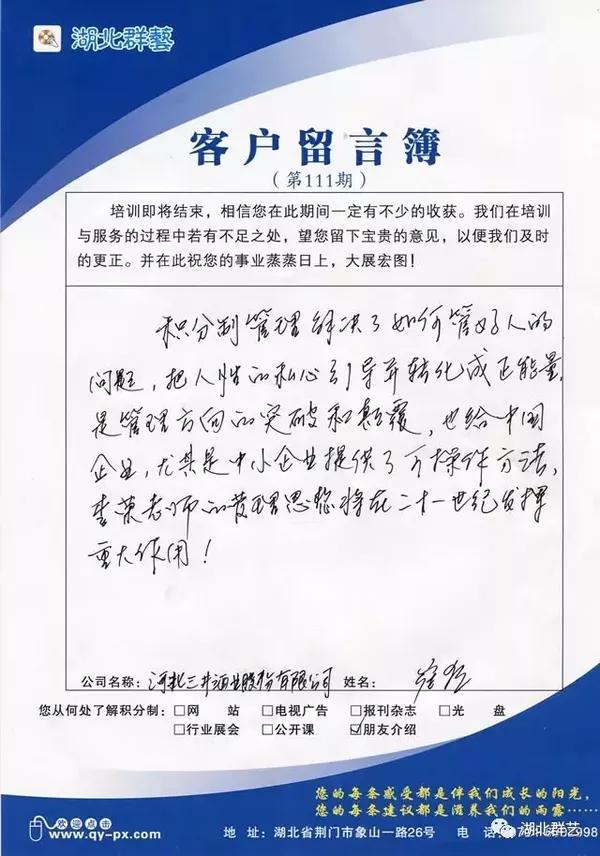 湖北群藝
客户留言簿
(第111期)
培训即将结束，相信您在此期间一定有不少的收获。我们在培训
与服务的过程中若有不足之处，望您留下宝贵的意见，以便我们及时
的更正。并在此祝您的事业蒸蒸日上，大展宏图！
积分制管理解决了如何管好人的
问题，把人性的私心引导并转化成正能量，
是管理方向的突破和颠覆，也给中国
企业，尤其是中小企业提供了可操作方法，
李荣老师的管理思想将在二十一世纪发挥
重大作用！
公司名称：河北三井酒业股份有限公司 姓名：
您从何处了解积分制：□网 站 □电视广告 □报刊杂志 □光 盘
□行业展会 □公开课 ☑朋友介绍
您的每条感受都是伴我们成长的阳光，
您的每条建议都是滋养我们的雨露……
欢迎点击
www.qy-px.com
地 址：湖北省荆门市象山一路26号 电 话
湖北群艺